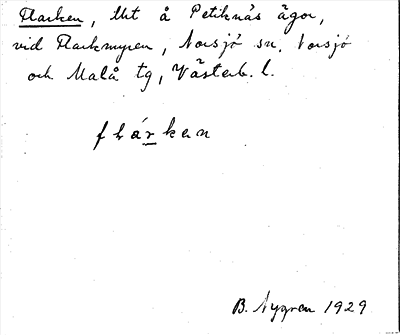 Flarken, litet å Petiknäs ägor,
vid Flarkmyren, Norsjö sn, Norsjö
och Malå tg, Västerb. l.
flárken
B. Nygren 1929